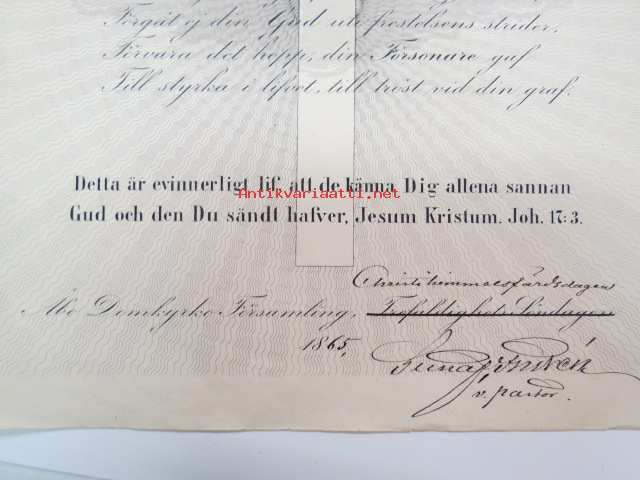 Förgät ej din Gud uti frestelsens strider,
Förvara det hopp, din Försonare gaf
Till styrka i lifvet, till tröst vid din graf.
Detta är evinnerligt lif, att de känna Dig allena sannan
Antikvariaatti.net
Gud och den Du sändt hafver, Jesum Kristum. Joh. 17: 3.
Christi himmelsfärdsdagen
Åbo Domkyrko Församling, Trefaldighets Söndagen
1865,
v. pastor.